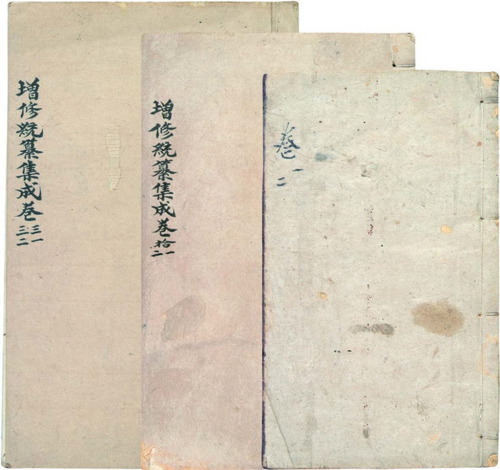 增修統纂集成卷三一
三二
增修統纂集成卷拾一
二
卷一
二